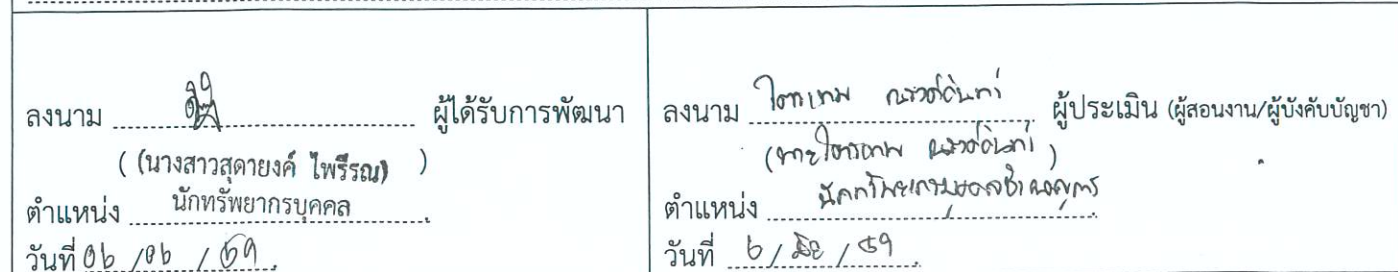 ลงนาม ผู้ได้รับการพัฒนา
( (นางสาวสุดายงค์ ไพรีรณ) )
ตำแหน่ง นักทรัพยากรบุคคล
วันที่ ๐๖ /๐๖ / ๕๙
ลงนาม ผู้ประเมิน (ผู้สอนงาน/ผู้บังคับบัญชา)
ตำแหน่ง นักทรัพยากรบุคคลชำนาญการ
วันที่ ๖ / มิย / ๕๙